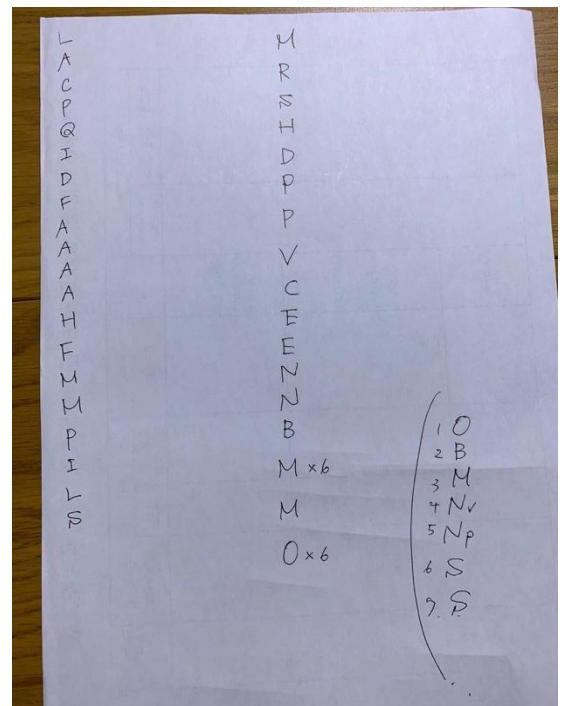 L
A
C
P
Q
I
D
F
A
A
A
A
H
F
M
M
P
I
L
S
M
R
S
H
D
P
P
V
C
E
E
N
N
B
M ×6
M
O ×6
1 O
2 B
3 M
4 Nv
5 Np
6 S
7. S
...